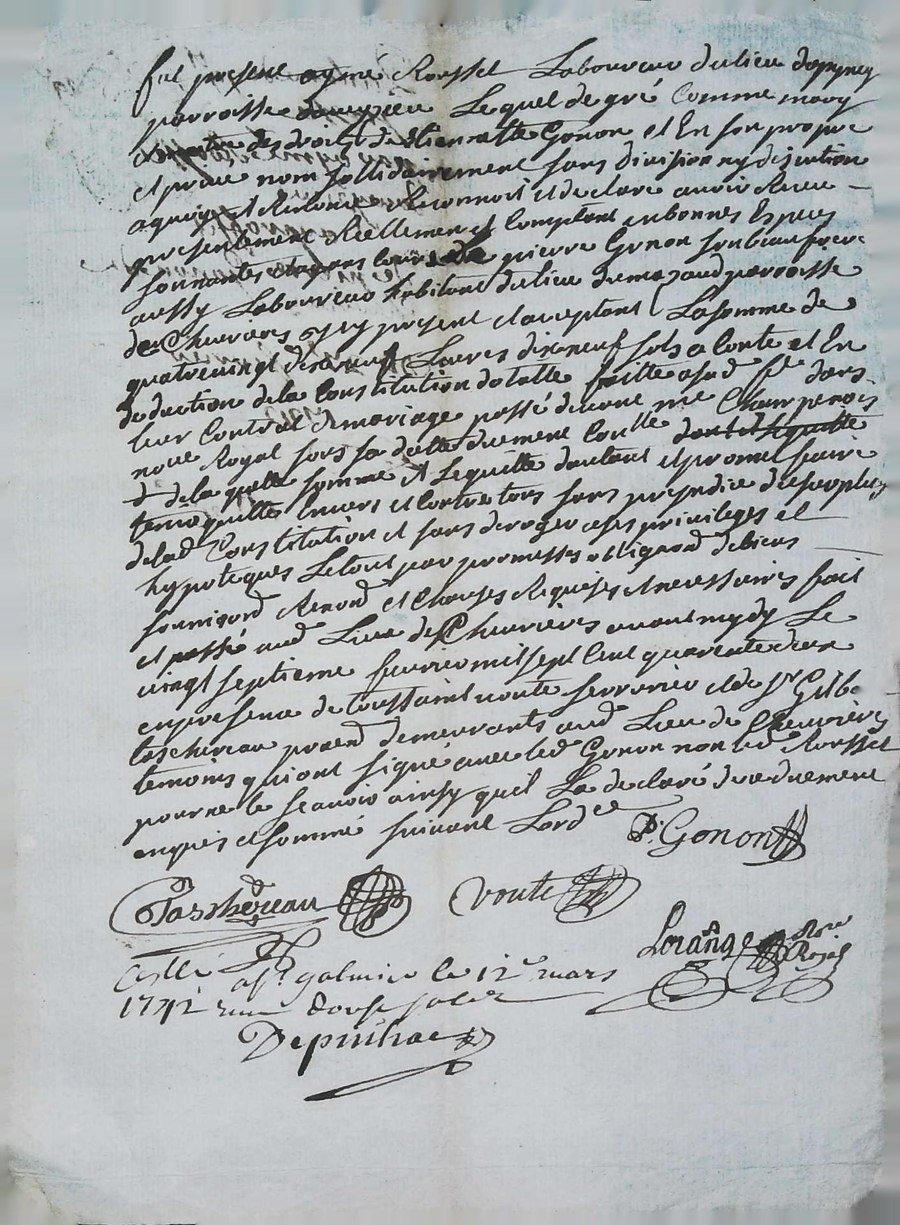 fut présent aymé Roussel Laboureur du lieu
parroisse Lequel de gré Comme mary
et maitre des droits d'Etiennatte Gonon et En son propre
et privé nom sollidairement sans division ny discution
a quoy il Renonce Reconnoit et declare avoir Receu
presentement Reellement et Comptant en bonnes Especes
sonnantes et ayans Cours de pierre Gonon son beau frere
aussy Laboureur habitant du lieu du mazaud parroisse
de Chevrieres icy present et acceptant La somme de
quatre vingt dixneuf Livres dixneuf sols a Conte et En
deduction de la Constitution dotalle faitte a sad. fe dans
leur Contrat de mariage passé devant me Champenois
nore Royal sous sa datte duement Conllé
de laquelle somme Il Lequitte dautant et promet faire
tenir quitte Envers et Contre tous sans prejudice du surplus
de lad. Constitution et sans deroger a ses privileges et
hypoteques Le tout par promesses obligaons de biens
soumisons Renons et Clauses Requises et necessaires fait
et passé aud. Lieu de Chevrières avant mydy Le
vingt septieme fevrier mil sept Cent quarente deux
en presence de toussaint voute serrurier et de sr Gilb.
taschereau praen demeurants aud. Lieu de Chevrières
temoins qui ont signé avec led. Gonon non led. Roussel
pour ne le scavoir ainsy quil La declaré de ce duement
enquis et sommé suivant Lordce
P. Gonon
Taschereau voute
Lorange Nore Royal
Collé a st galmier le 12e mars
1742 Receu douse sols
Depuihac